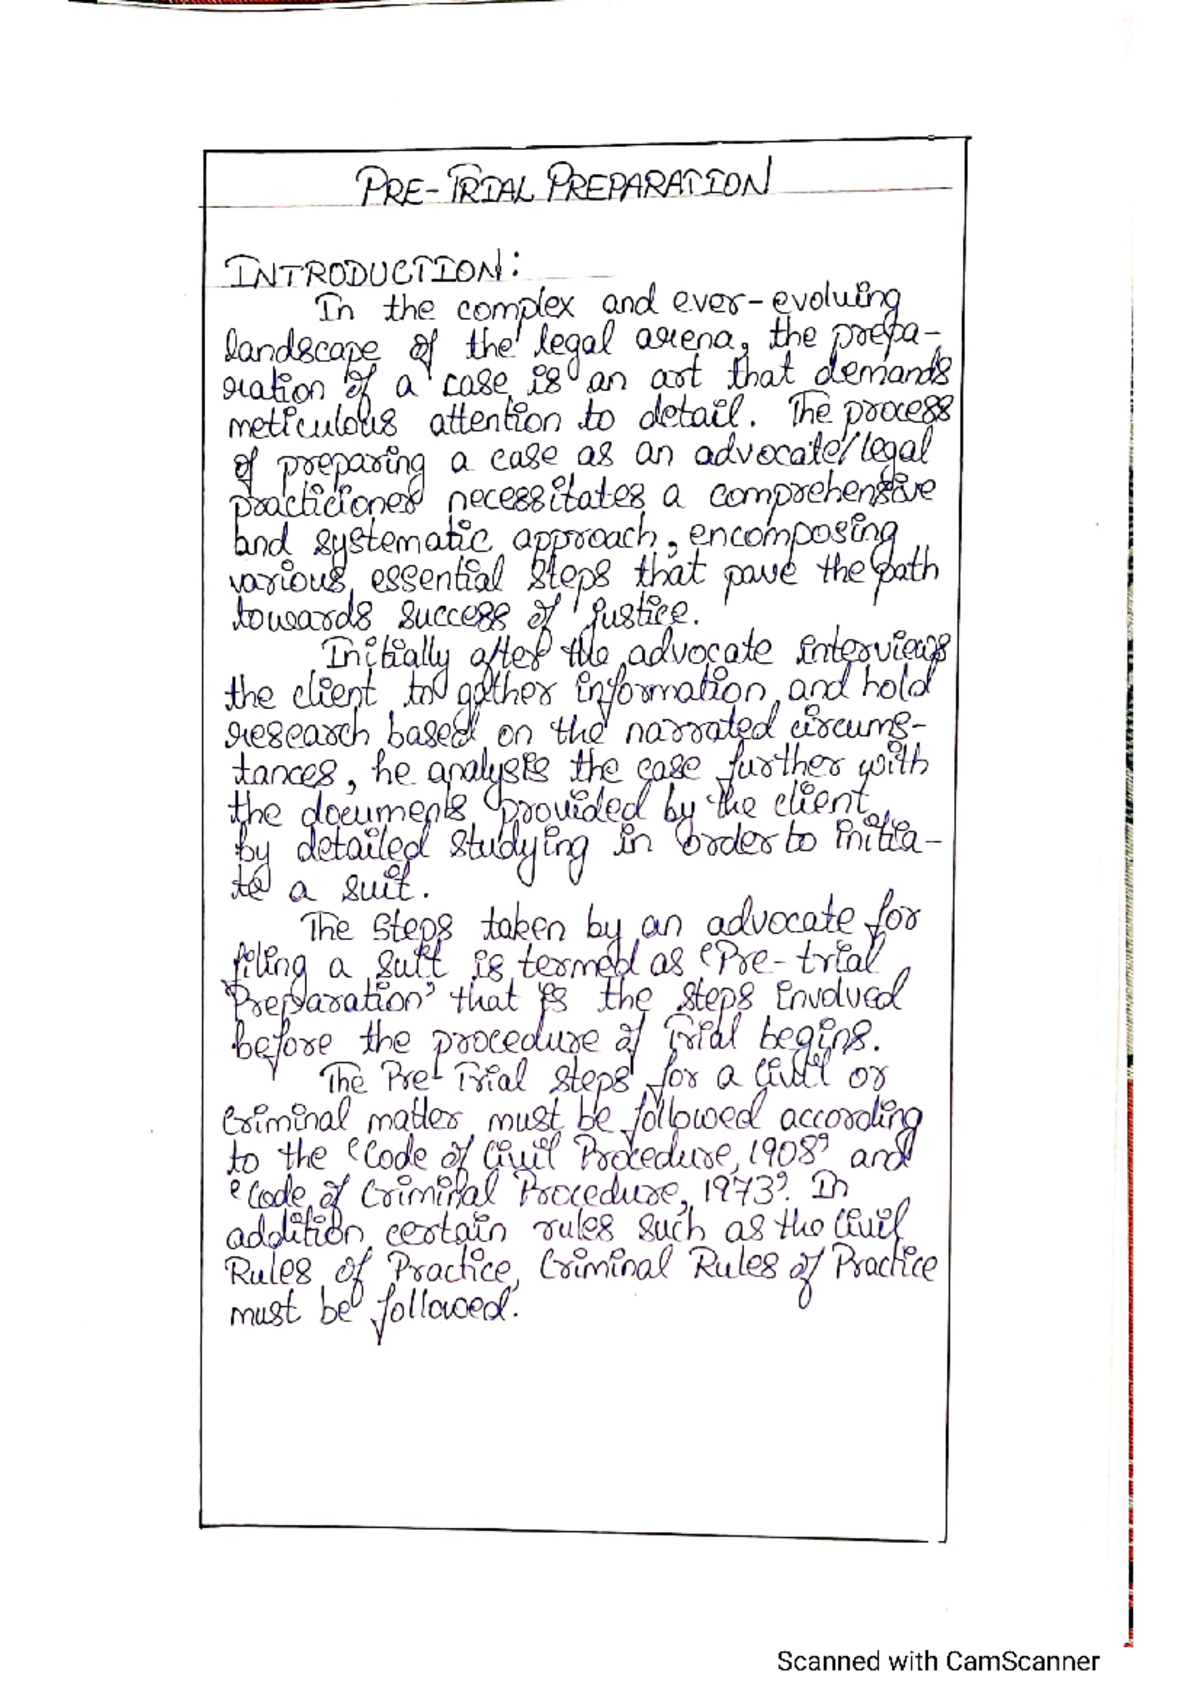 PRE-TRIAL PREPARATION
INTRODUCTION:
In the complex and ever-evolving
landscape of the legal arena, the prepa-
ration of a case is an art that demands
meticulous attention to detail. The process
of preparing a case as an advocate/legal
practicioner necessitates a comprehensive
and systematic approach, encomposing
various essential steps that pave the path
towards success of justice.
Initially after the advocate interviews
the client to gather information and hold
research based on the narrated circums-
tances, he analysis the case further with
the documents provided by the client
by detailed studying in order to initia-
te a suit.
The steps taken by an advocate for
filing a suit is termed as 'Pre-trial
Preparation' that is the steps involved
before the procedure of Trial begins.
The Pre-Trial steps for a Civil or
Criminal matter must be followed according
to the 'Code of Civil Procedure, 1908' and
'Code of Criminal Procedure, 1973'. In
addition certain rules such as the Civil
Rules of Practice, Criminal Rules of Practice
must be followed.
Scanned with CamScanner